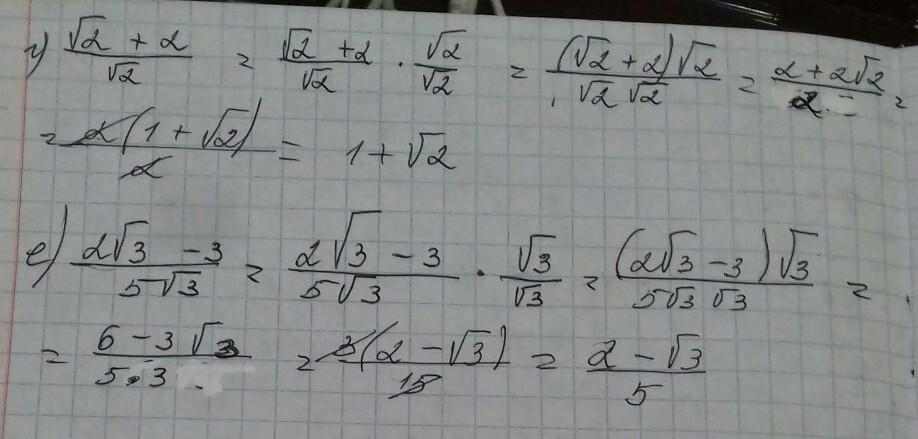 г) (√2 + 2)/√2 = (√2 + 2)/√2 · √2/√2 = ((√2 + 2)√2)/(√2 √2) = (2 + 2√2)/2 =
= (2(1 + √2))/2 = 1 + √2
е) (2√3 - 3)/(5√3) = (2√3 - 3)/(5√3) · √3/√3 = ((2√3 - 3)√3)/(5√3 √3) =
= (6 - 3√3)/(5·3) = (3(2 - √3))/15 = (2 - √3)/5